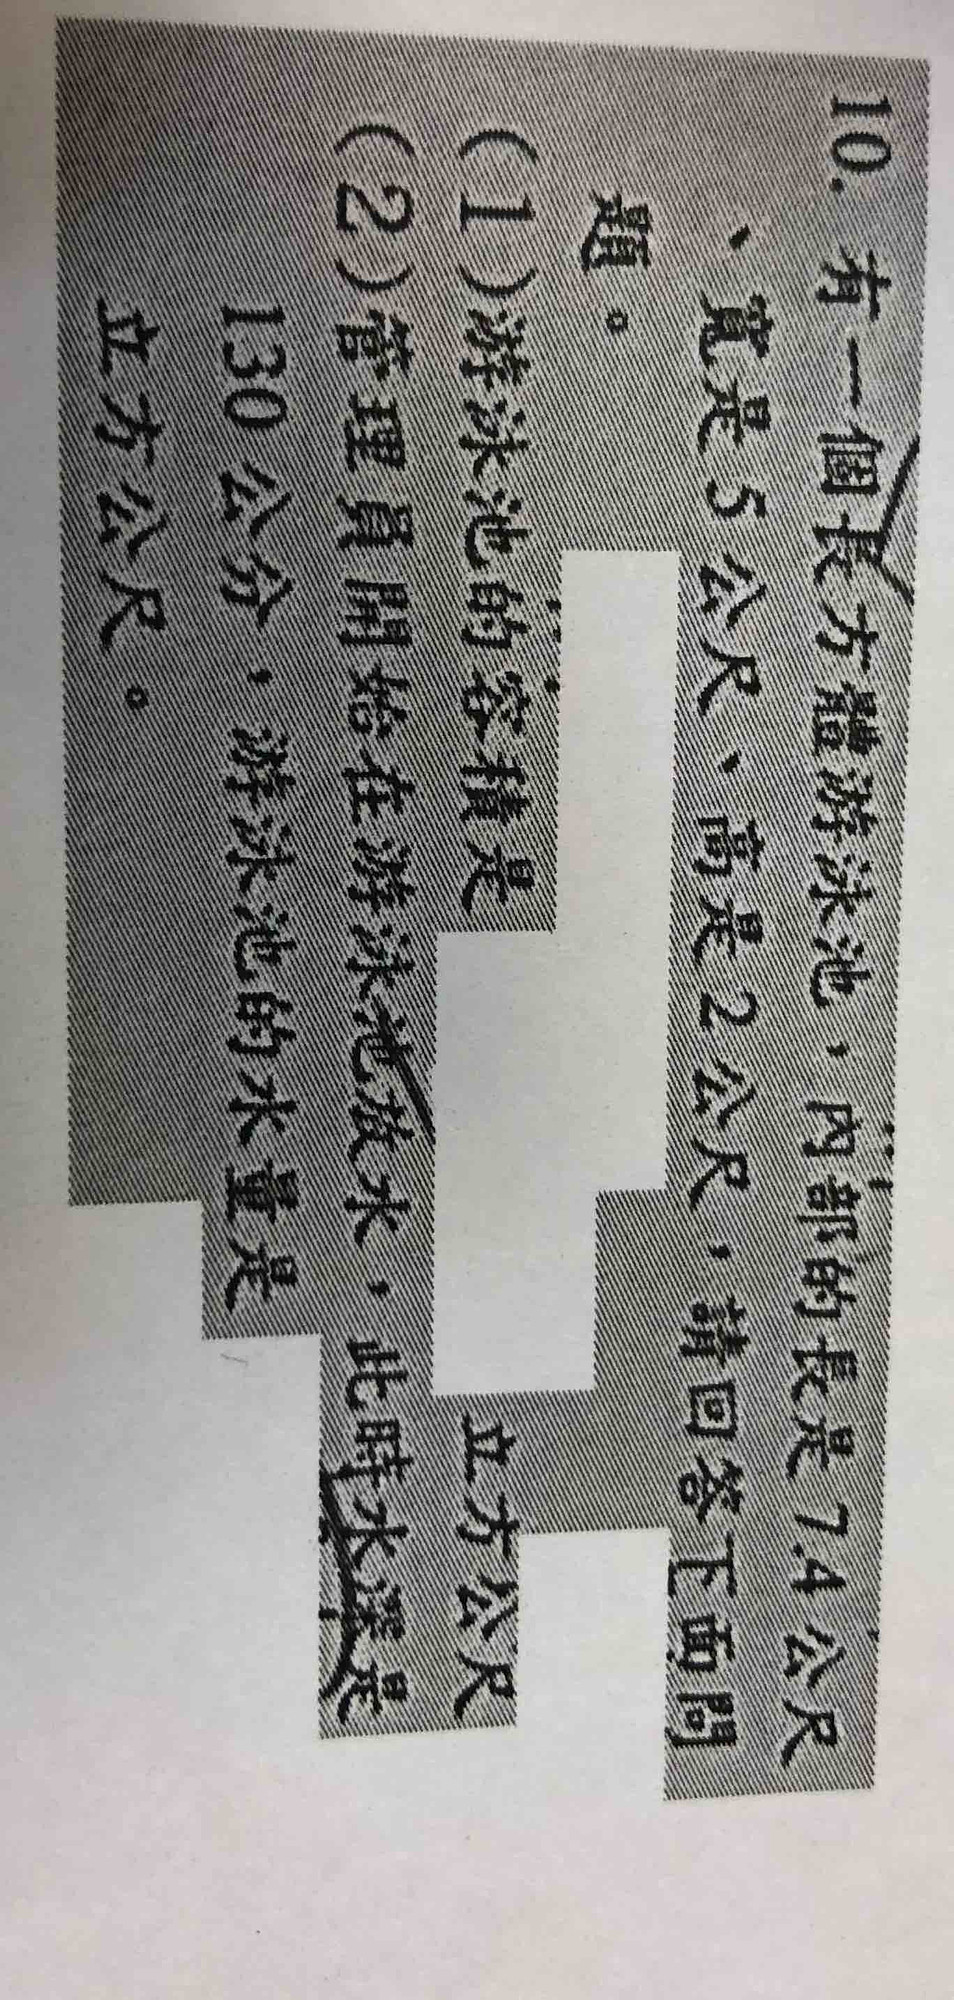 10. 有一個長方體游泳池，內部的長是 7.4 公尺
、寬是 5 公尺、高是 2 公尺，請回答下面問
題。
(1)游泳池的容積是　　　　立方公尺
(2)管理員開始在游泳池放水，此時水深是
130 公分，游泳池的水量是
立方公尺。